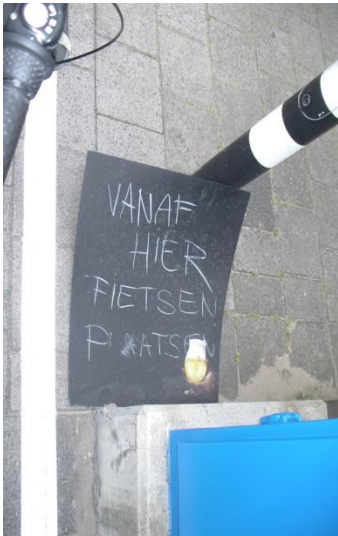 VANAF
HIER
FIETSEN
PLAATSEN